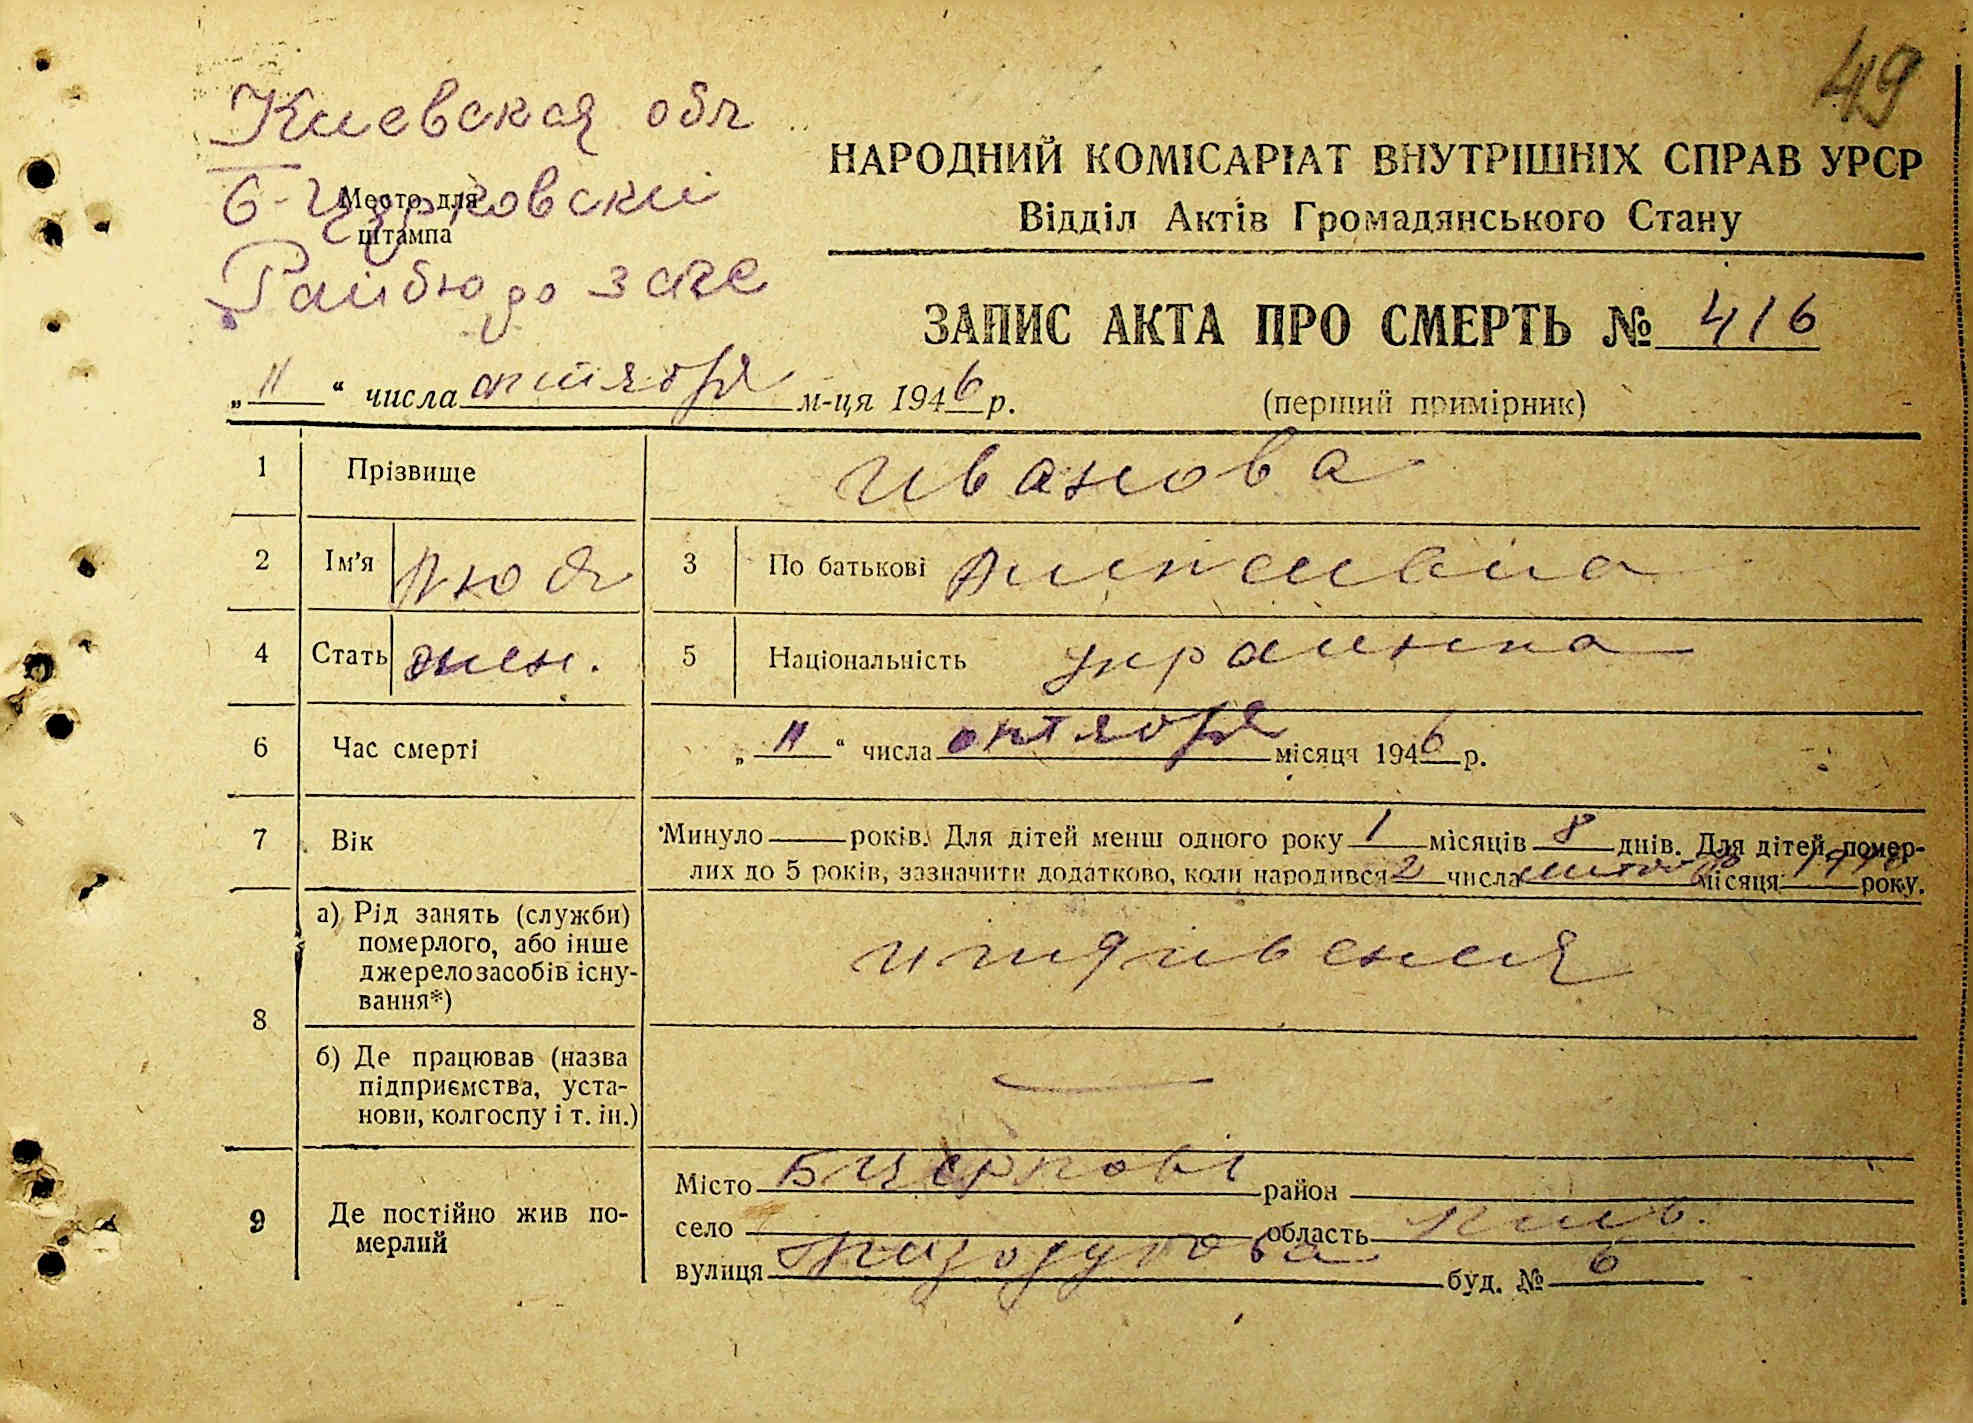 49
Киевская обл
Б-Церковский
Место для
штампа
Райбюро загс
НАРОДНИЙ КОМІСАРІАТ ВНУТРІШНІХ СПРАВ УРСР
Відділ Актів Громадянського Стану
ЗАПИС АКТА ПРО СМЕРТЬ № 416
„11“ числа октября м-ця 1946 р.
(перший примірник)
1 Прізвище Иванова
2 Ім'я 3 По батькові
4 Стать жен. 5 Національність украинка
6 Час смерті „11“ числа октября місяця 1946 р.
7 Вік Минуло років. Для дітей менш одного року 1 місяців 8 днів. Для дітей, помер-
лих до 5 років, зазначити додатково, коли народився 2 числа місяця року.
8 а) Рід занять (служби)
померлого, або інше
джерело засобів існу-
вання*)
иждивения
б) Де працював (назва
підприємства, уста-
нови, колгоспу і т. ін.) —
9 Де постійно жив по-
мерлий
Місто район
село область Киев.
вулиця буд. № 6